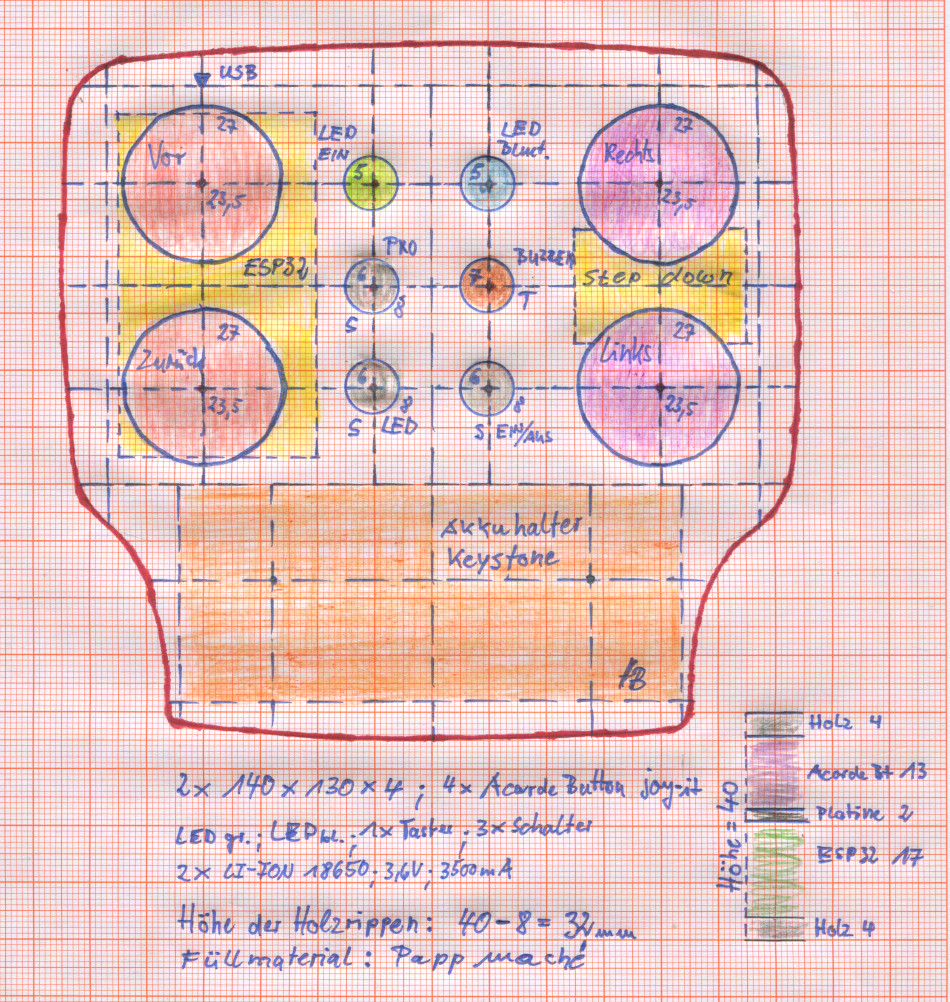 USB
27
Vor
23,5
LED
EIN
5
LED
Bluet.
5
27
Rechts
23,5
ESP32
PRO
6
8
S
BUZZER
7
T
Step down
27
Zurück
23,5
6
8
S LED
6
8
S EIN/AUS
27
Links
23,5
Akkuhalter
Keystone
HB
2x 140 x 130 x 4 ; 4x Acarde Button joy-it
LED gr. ; LED bl. ; 1x Taster ; 3x Schalter
2x LI-ION 18650 ; 3,6V ; 3500mA
Höhe der Holzrippen: 40-8 = 32mm
Füllmaterial : Papp maché
Höhe = 40
Holz 4
Acarde Bt 13
Platine 2
ESP32 17
Holz 4